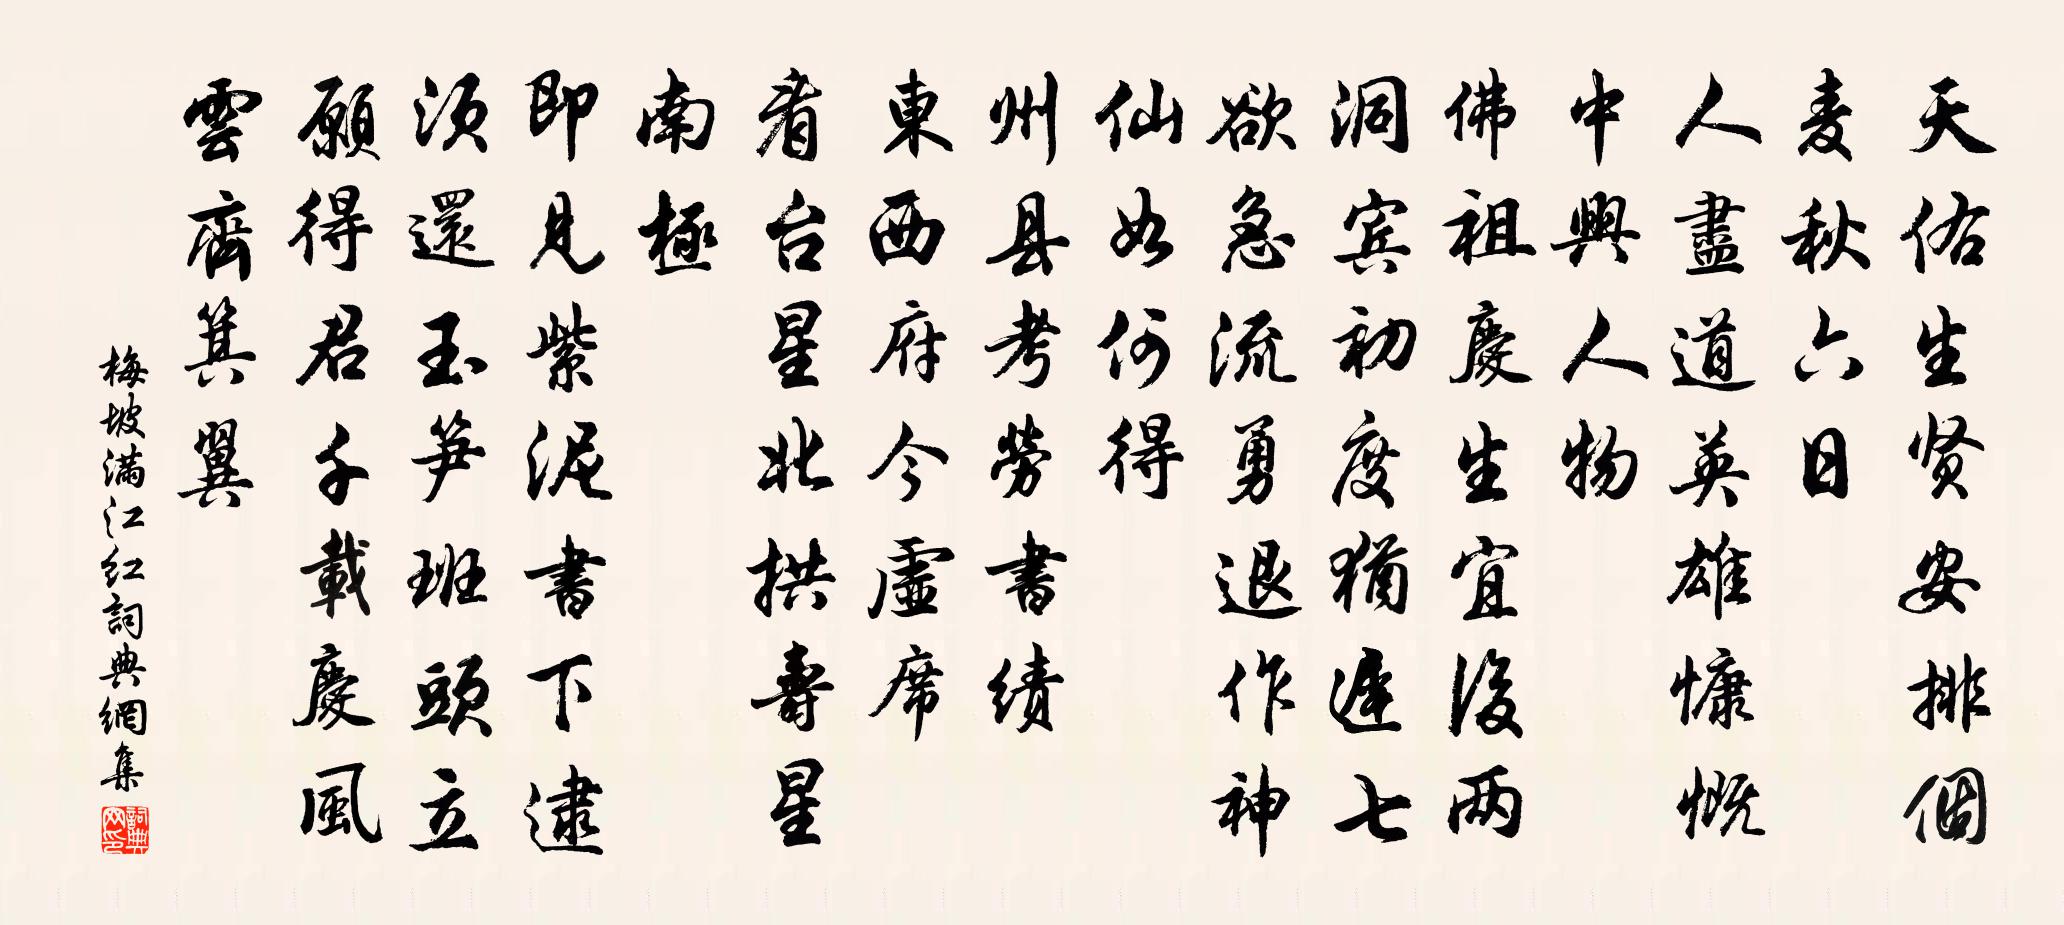 天佑生贤安排個
麦秋六日
人盡道英雄慷慨
中興人物
佛祖慶生宜後两
洞宾初度猶遲七
欲急流勇退作神
仙如何得
州县考劳書绩
東西府今虚席
看台星北拱壽星
南極
即見紫泥書下逮
须還玉笋班頭立
願得君千載慶風
雲齊箕翼
梅坡满江红詞典網集
詞典网印